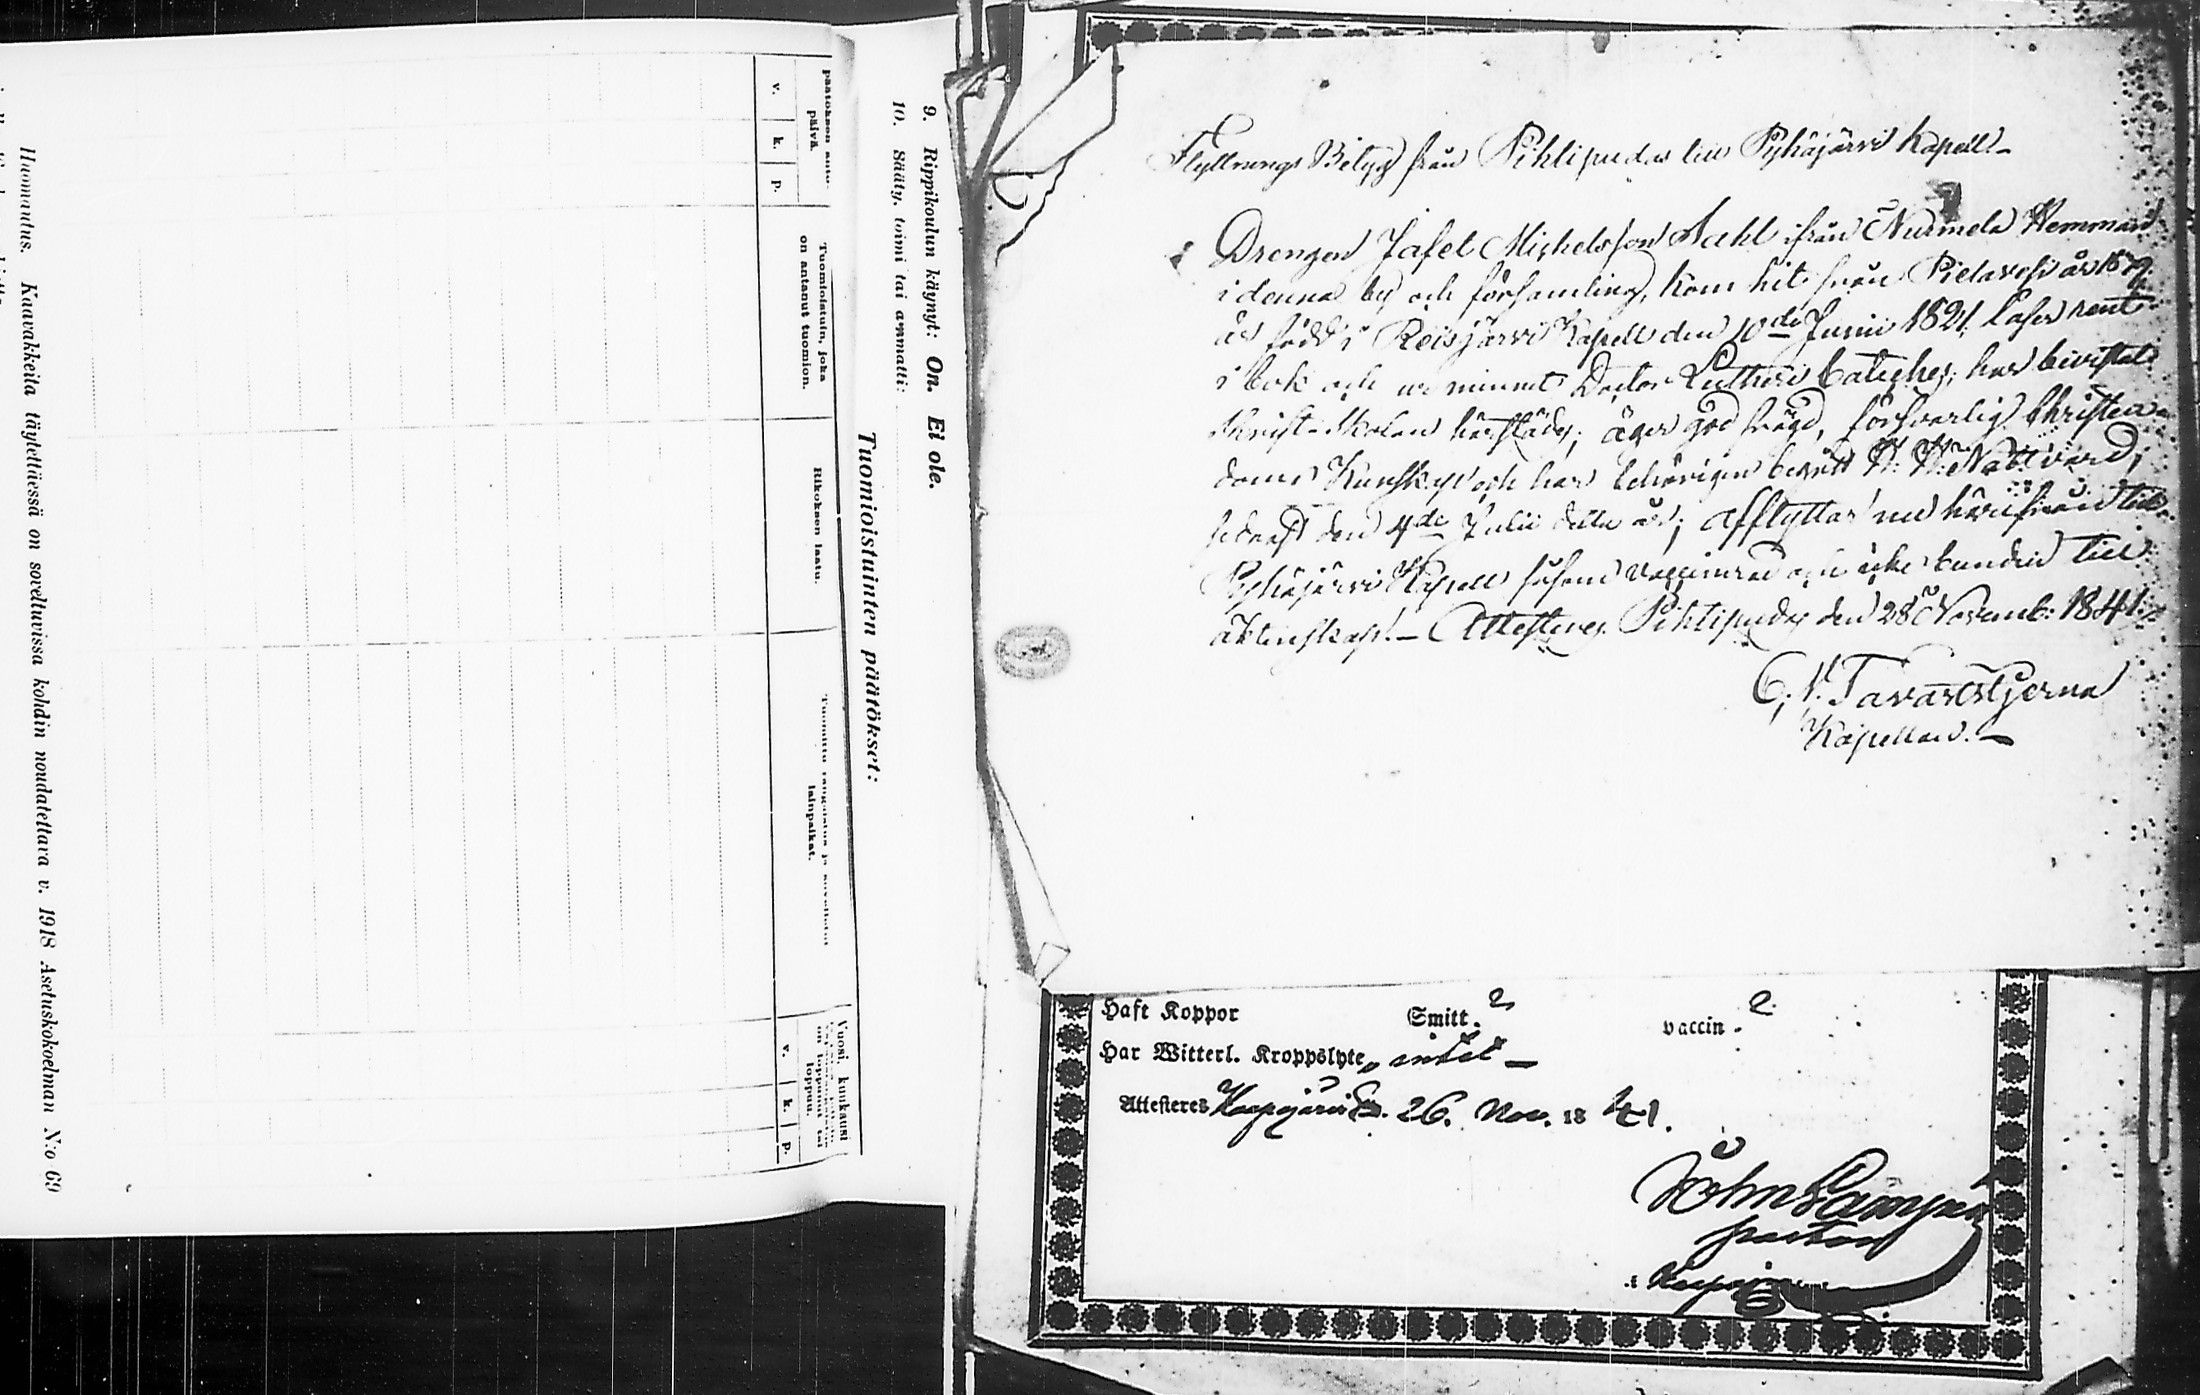 9. Rippikoulun käynyt: On. Ei ole.
10. Sääty, toimi tai ammatti:
Tuomioistuinten päätökset:
päätöksen anto-
päivä.
v. k. p.
Tuomioistuin, joka
on antanut tuomion.
Rikoksen laatu.
Tuomittu rangaistus ja sovelletut
lainpaikat.
Vuosi, kuukausi
on loppunut tai
loppuu.
v. k. p.
Huomautus. Kaavakkeita täytettäessä on soveltuvissa kohdin noudatettava v. 1918 Asetuskokoelman N:o 69
Flyttnings Betyg från Pihlipudas till Pyhäjärvi Kapell.
Drengen Jafet Michelsson Sahl ifrån Nurmela Hemman
i denna by och församling, kom hit från Pielavesi år
är född i Reisjärvi Kapell den 10de Junii 1821, Läser rent
i bok och ur minnet Doctor Lutheri Cateches; har bevistat
Skrift-Skolan härstädes; äger god frägd, försvarlig Christen-
doms Kunskap och har behörigen begått H. H. Nattvard,
sednast den 4de Julii detta år; afflyttar nu härifrån till
Pyhäjärvi Kapell såsom vaccinerad och icke bunden till
äktenskap. — Attesteres Pihlipudas den 28 Novemb: 1841.
C. N. Tavaststjerna
Kapellan.
Haft Koppor Smitt. 2 vaccin. 2.
Har Witterl. Kroppslyte, intet —
Attesteres 26. Nov. 1841.
pastor